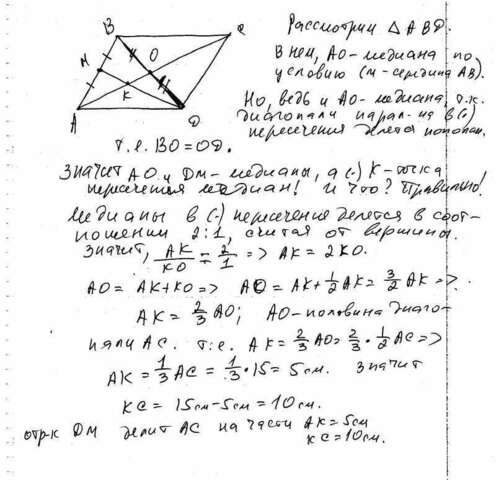 B
C
M
O
K
A
D
Рассмотрим △ ABD.
В нем, AO-медиана по
условию (M-середина AB).
Но, ведь и AO-медиана, т.к.
диагонали парал-ма в (·)
пересечения делятся пополам.
т.е. BO=OD.
Значит AO и DM-медианы, а (·) K-точка
пересечения медиан! И что? Правильно!
Медианы в (·) пересечения делятся в соот-
ношении 2:1, считая от вершины.
Значит, AK/KO = 2/1 => AK = 2KO.
AO = AK+KO => AO = AK+1/2 AK = 3/2 AK =>
AK = 2/3 AO; AO-половина диаго-
нали AC. т.е. AK = 2/3 AO = 2/3 · 1/2 AC =>
AK = 1/3 AC = 1/3 · 15 = 5см. Значит
KC = 15см-5см = 10см.
отр-к DM делит AC на части AK=5см
KC=10см.